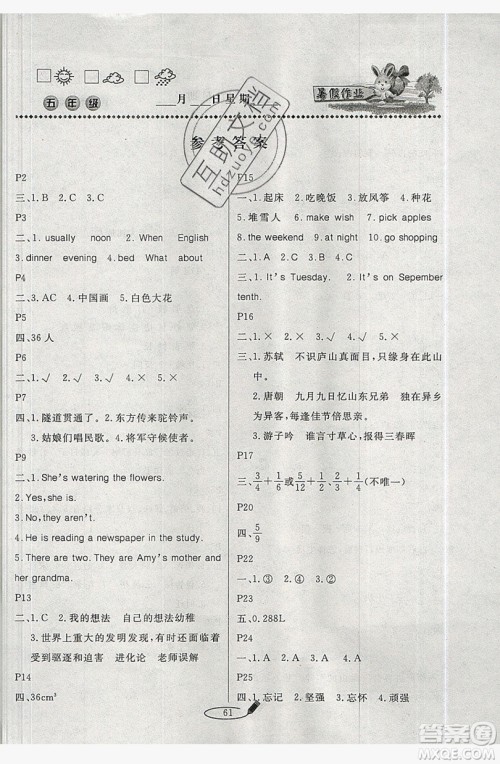 五年级
月 日星期
暑假作业
参考答案
P2
三、1. B 2. A 3. C
P3
二、1. usually noon 2. When English
3. dinner evening 4. bed What about
P4
二、3. AC 4. 中国画 5. 白色大花
P5
四、36人
P6
二、1. √ 2. √ 3. √ 4. ×
P8
一、1. 隧道贯通了。 2. 东方传来驼铃声。
3. 姑娘们唱民歌。 4. 将军守候使者。
P9
二、1. She's watering the flowers.
2. Yes, she is.
3. No, they aren't.
4. He is reading a newspaper in the study.
5. There are two. They are Amy's mother and
her grandma.
P13
三、1. C 2. 我的想法 自己的想法幼稚
3. 世界上重大的发明发现，有许多在当时还面临着
受到驱逐和迫害 进化论 老师误解
P14
四、36cm³
P15
一、1. 起床 2. 吃晚饭 3. 放风筝 4. 种花
5. 堆雪人 6. make wish 7. pick apples
8. the weekend 9. at night 10. go shopping
二、1. A 2. A 3. C 4. C
三、1. It's Tuesday. 2. It's on Sepember
tenth.
P16
二、1. × 2. √ 3. √ 4. ×
三、1. 苏轼 不识庐山真面目，只缘身在此山中。
2. 唐朝 九月九日忆山东兄弟 独在异乡
为异客，每逢佳节倍思亲。
3. 游子吟 谁言寸草心，报得三春晖
P17
三、3/4+1/6或5/12+1/2(不唯一)
P20
四、5/9
P22
一、1. ③ 2. ④
P23
五、0.288L
P24
四、1. 忘记 2. 坚强 3. 忘怀 4. 顽强
61
互助文档
hdzuoye.com
答案圈